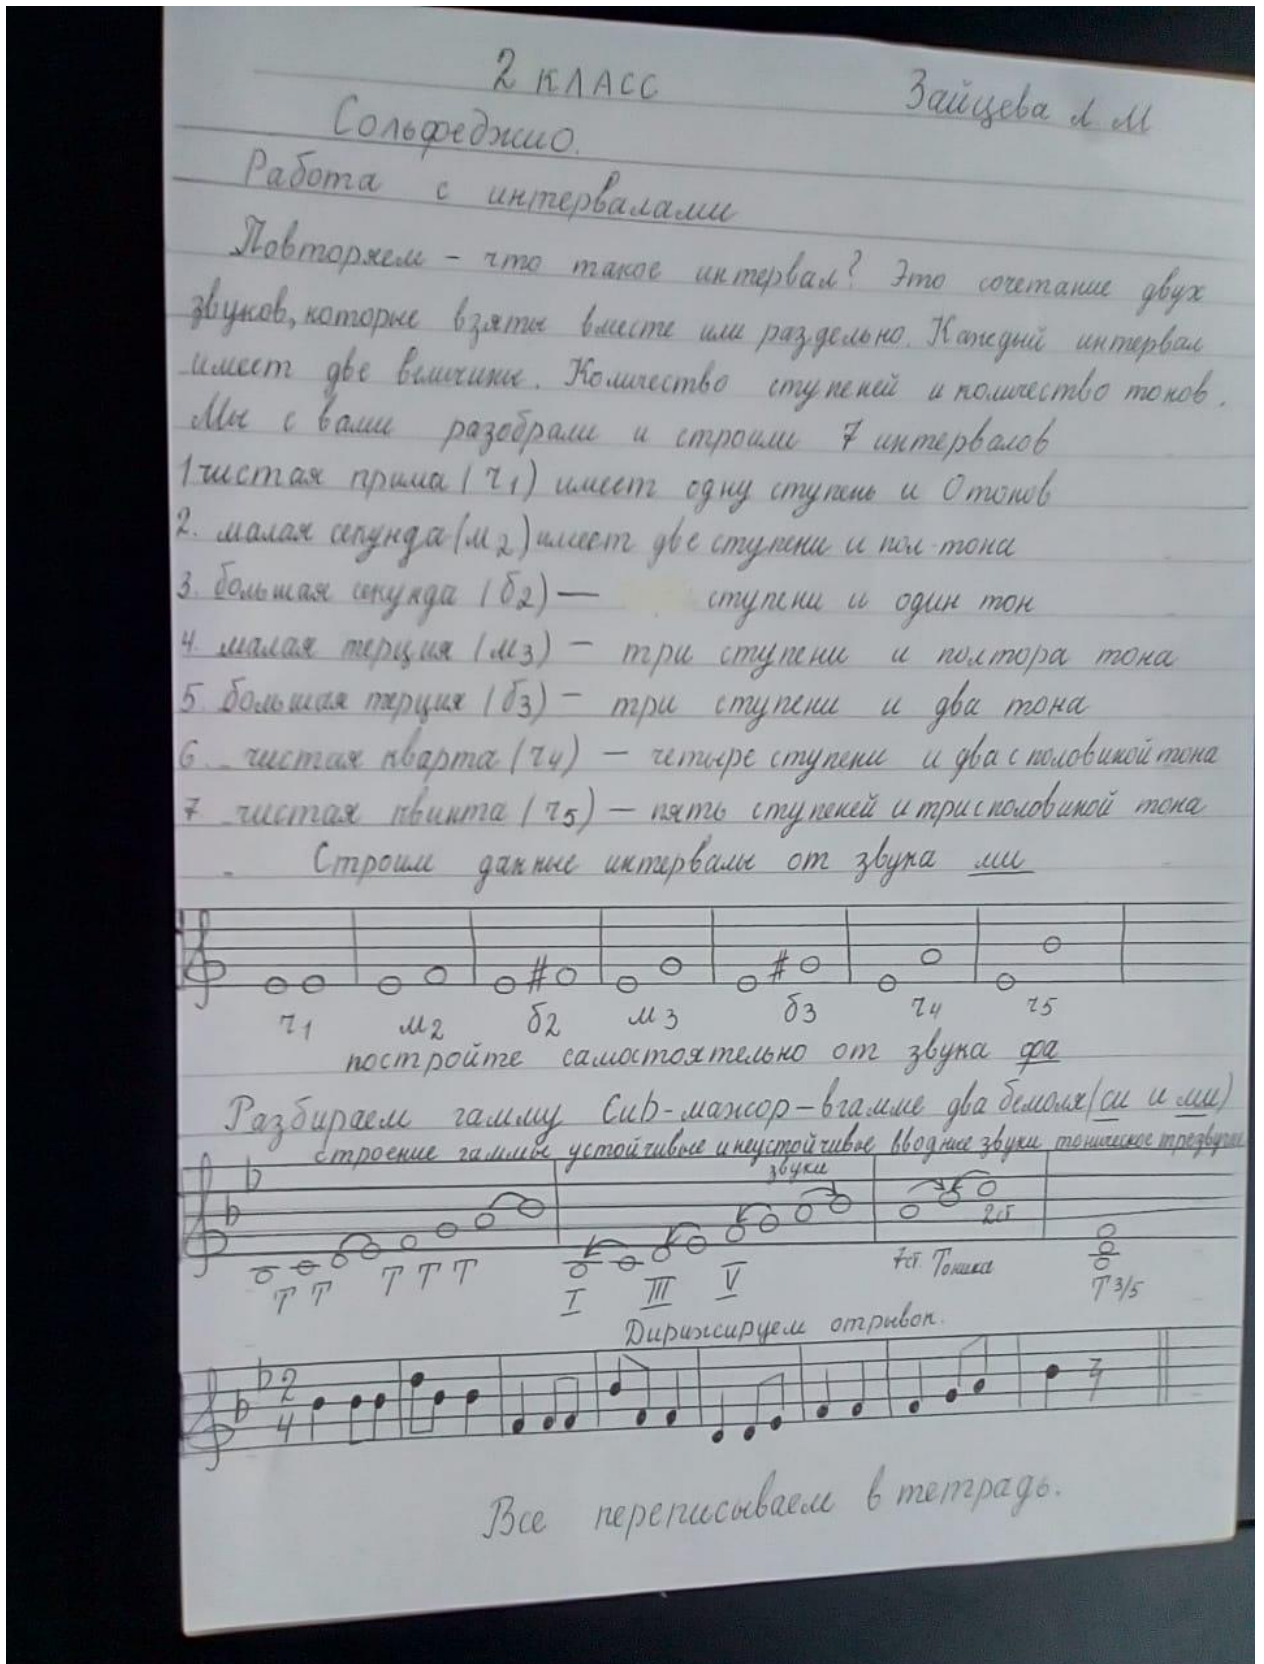 2 КЛАСС Зайцева Л. М
Сольфеджио.
Работа с интервалами
Повторяем - что такое интервал? Это сочетание двух
звуков, которые взяты вместе или раздельно. Каждый интервал
имеет две величины. Количество ступеней и количество тонов.
Мы с вами разобрали и строили 7 интервалов
1 чистая прима (ч1) имеет одну ступень и 0 тонов
2. малая секунда (м2) имеет две ступени и пол-тона
3. большая секунда (б2) — ступени и один тон
4. малая терция (м3) - три ступени и полтора тона
5. большая терция (б3) - три ступени и два тона
6. чистая кварта (ч4) — четыре ступени и два с половиной тона
7 чистая квинта (ч5) — пять ступеней и три с половиной тона
Строим данные интервалы от звука ми
ч1 м2 б2 м3 б3 ч4 ч5
постройте самостоятельно от звука фа
Разбираем гамму Сиb-мажор - в гамме два бемоля (си и ми)
строение гаммы устойчивые и неустойчивые звуки вводные звуки тоническое трезвучие
Т Т Т Т Т I III V 7ст. Тоника 2ст Т 3/5
Дирижируем отрывок.
2
4
Все переписываем в тетрадь.